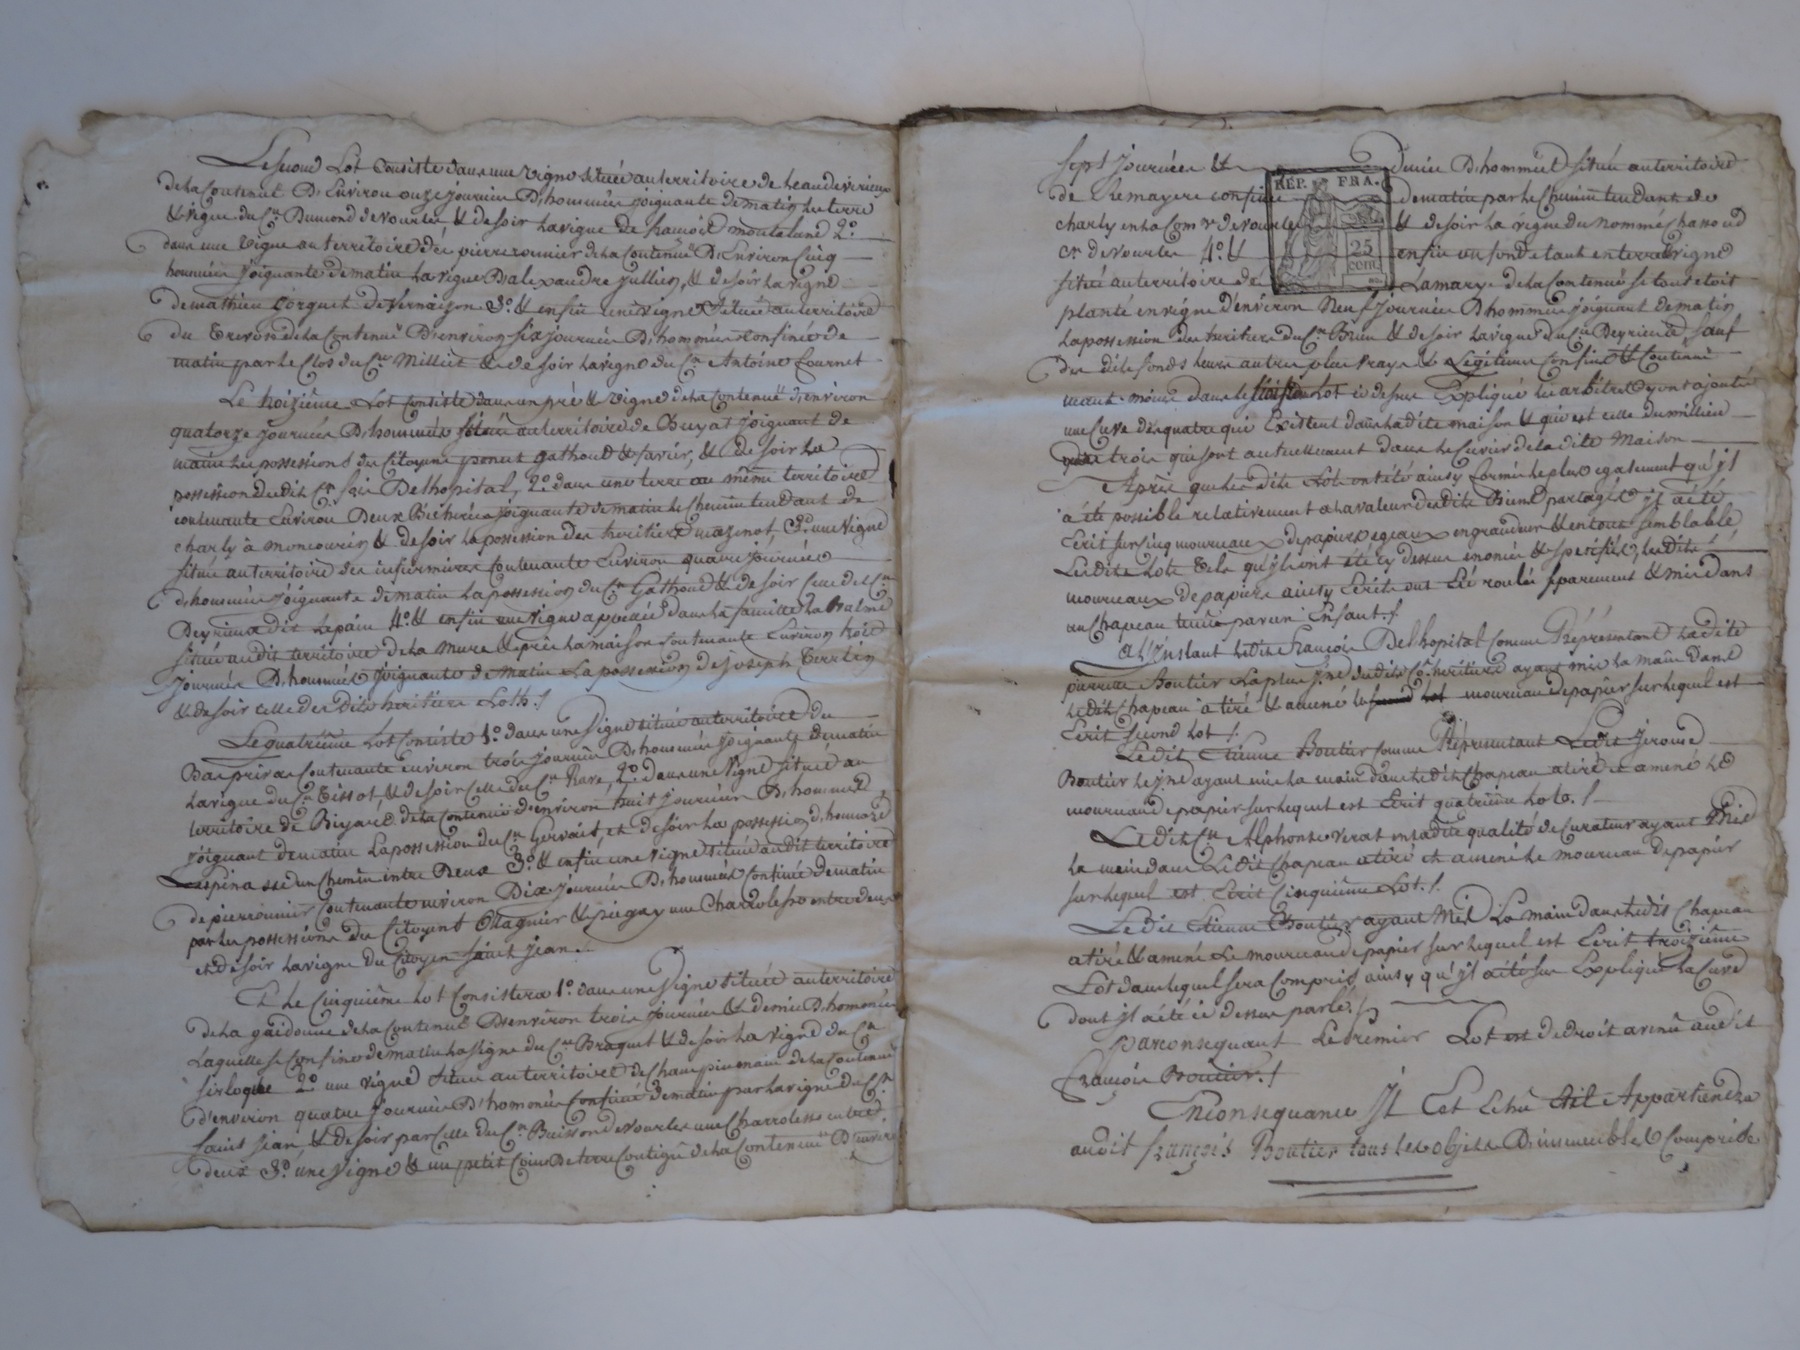 Le second Lot Consiste dans une vigne située au territoire de
de la Contenue D'Environ onze journées D'hommées joignante de matin les terre
& vigne du Cn. Dumond de vourles, & de soir la vigne de francois montaland 2.o
dans une vigne au territoire de pierre ronnier de la Contenue D'Environ Cinq
hommées joignante de matin la vigne D'alexandre jullien, & de soir la vigne
de mathieu Corquet de Vernaizon 3.o & enfin une vigne située au territoire
du de la Contenue D'environ six journées D'hommées confinée de
matin par le Clos du Cn. Milliet & de soir la vigne du Cn Antoine Cournet
Le troizième Lot Consiste dans un pré & vigne de la Contenue d'environ
quatorze journées D'hommées située au territoire de Buyat joignant de
matin les possessions des Citoyens poncet gathoud & favier, & de soir la
possession dudit Cn. Delhopital, 2.o dans une terre au même territoire
contenante Environ Deux Bicherées joignante de matin le Chemin tendant de
charly à & de soir la possession des heritiers mazenot, 3.o une vigne
située au territoire des infirmières Contenante Environ quatre journées
d'hommées joignante de matin la possession du Cn. Gathoud & de soir Celle du Cn.
Deyrieux dit Lepain 4.o & enfin une vigne appellée dans la famille La Balme
située audit territoire de la mure & près la maison Contenante Environ trois
journées D'hommées joignante de Matin La possession de joseph Terrlin
& de soir celle desdits heritiers Loth./
Le quatrième Lot Consiste 1.o dans une vigne située au territoire du
Contenante environ trois journées D'hommées joignante de matin
la vigne du Cn. Tissot, & de soir Celle du Cn. Rave, 2.o dans une vigne située au
territoire de de la Contenue d'environ huit journées D'hommées
joignant de matin La possession du Cn. Gervais, et de soir La possession d'honnoré
Laspinasse un Chemin entre Deux 3.o & enfin une vigne située audit territoire
de pierronnier Contenante environ Dix journées D'hommées Confinée de matin
par les possessions des Citoyens Ollagnier & une Charrolesse entre deux
et de soir la vigne du Citoyen Saint jean./.
Et le Cinquième Lot Consistera 1.o dans une vigne située au territoire
de la gaidonne de la Contenue D'environ trois journées & demie D'homées
Laquelle se Confine de matin la vigne du Cn. Braquet & de soir la vigne du Cn.
2.o une vigne située au territoire de Champinmain de la Contenue
d'environ quatre journées D'homées Confinée de matin par la vigne du Cn.
Saint jean & de soir par Celle du Cn. Buisson de Vourles une Charrolesse entre
deux 3.o une vigne & un petit Coin De terre Contigu de la Contenue D'environ
sept journées & demies D'hommées située au territoire
de confinée de matin par le Chemin tendant de
charly en la Comne de vourles & de soir la vigne du nommé Chanoud
Cn. de vourles 4.o & enfin un fond étant en terre & vigne
située au territoire de Lamary de la Contenue si tout etoit
planté en vigne d'environ Neuf journées D'hommées joignant de matin
la possession des heritiers du Cn. Brun & de soir la vigne du Cn. Deyrieux, sauf
desdits fonds leurs autres plus vrays & Légitimes Confins & Contenue
dans le troisième Lot ci dessus Expliqué les arbitres y ont ajouté
une Cuve des quatre qui Existent dans la dite maison & qui est celle du millieu
des trois qui sont actuellement dans le Cuvier de la dite Maison
Après que les dits Lots ont été ainsy formés le plus egalement qu'yl
a été possible relativement à la valeur desdits Biens partagés yl a été
Ecrit sur cinq morceaux de papiers egaux en grandeur & en tout semblable
Lesdits Lots tels qu'yls ont été cy dessus enoncés & spécifiés, lesdits
morceaux de papiers ainsy Ecrits ont été roulés séparement & mis dans
un Chapeau tenu par un Enfant./.
A L'Ynstant ledit François Delhopital Comme Représentant ladite
pierrette Boutier La plus jne. desdits Co-heritiers ayant mis la main dans
ledit Chapeau a tiré & amené le second lot morceau de papier sur lequel est
Ecrit second Lot /.
Ledit Etienne Boutier Comme Représentant Ledit jerome
Boutier le jne. ayant mis la main dans ledit Chapeau a tiré et amené le
morceau de papier sur lequel est Ecrit quatrième Lots./.
Ledit Cn. Alphonse verat en sadite qualité de Curateur ayant Mis
la main dans Ledit Chapeau a tiré et amené le morceau de papier
sur lequel est Ecrit Cinquième Lot./.
Ledit Etienne Boutier ayant Mis La main dans ledit Chapeau
a tiré & amené Le morceau de papier sur lequel est Ecrit troizième
Lot dans lequel sera Compris ainsy qu'yl a été sus Expliqué la Cuve
dont yl a été ci dessus parlé./.
par conséquant Le Premier Lot est de droit avenu audit
françois Boutier./
En consequance Jl Est Echu Appartiendra
audit françois Boutier tous les objets D'immeubles Compris
RÉP. FRA.
25
cent.